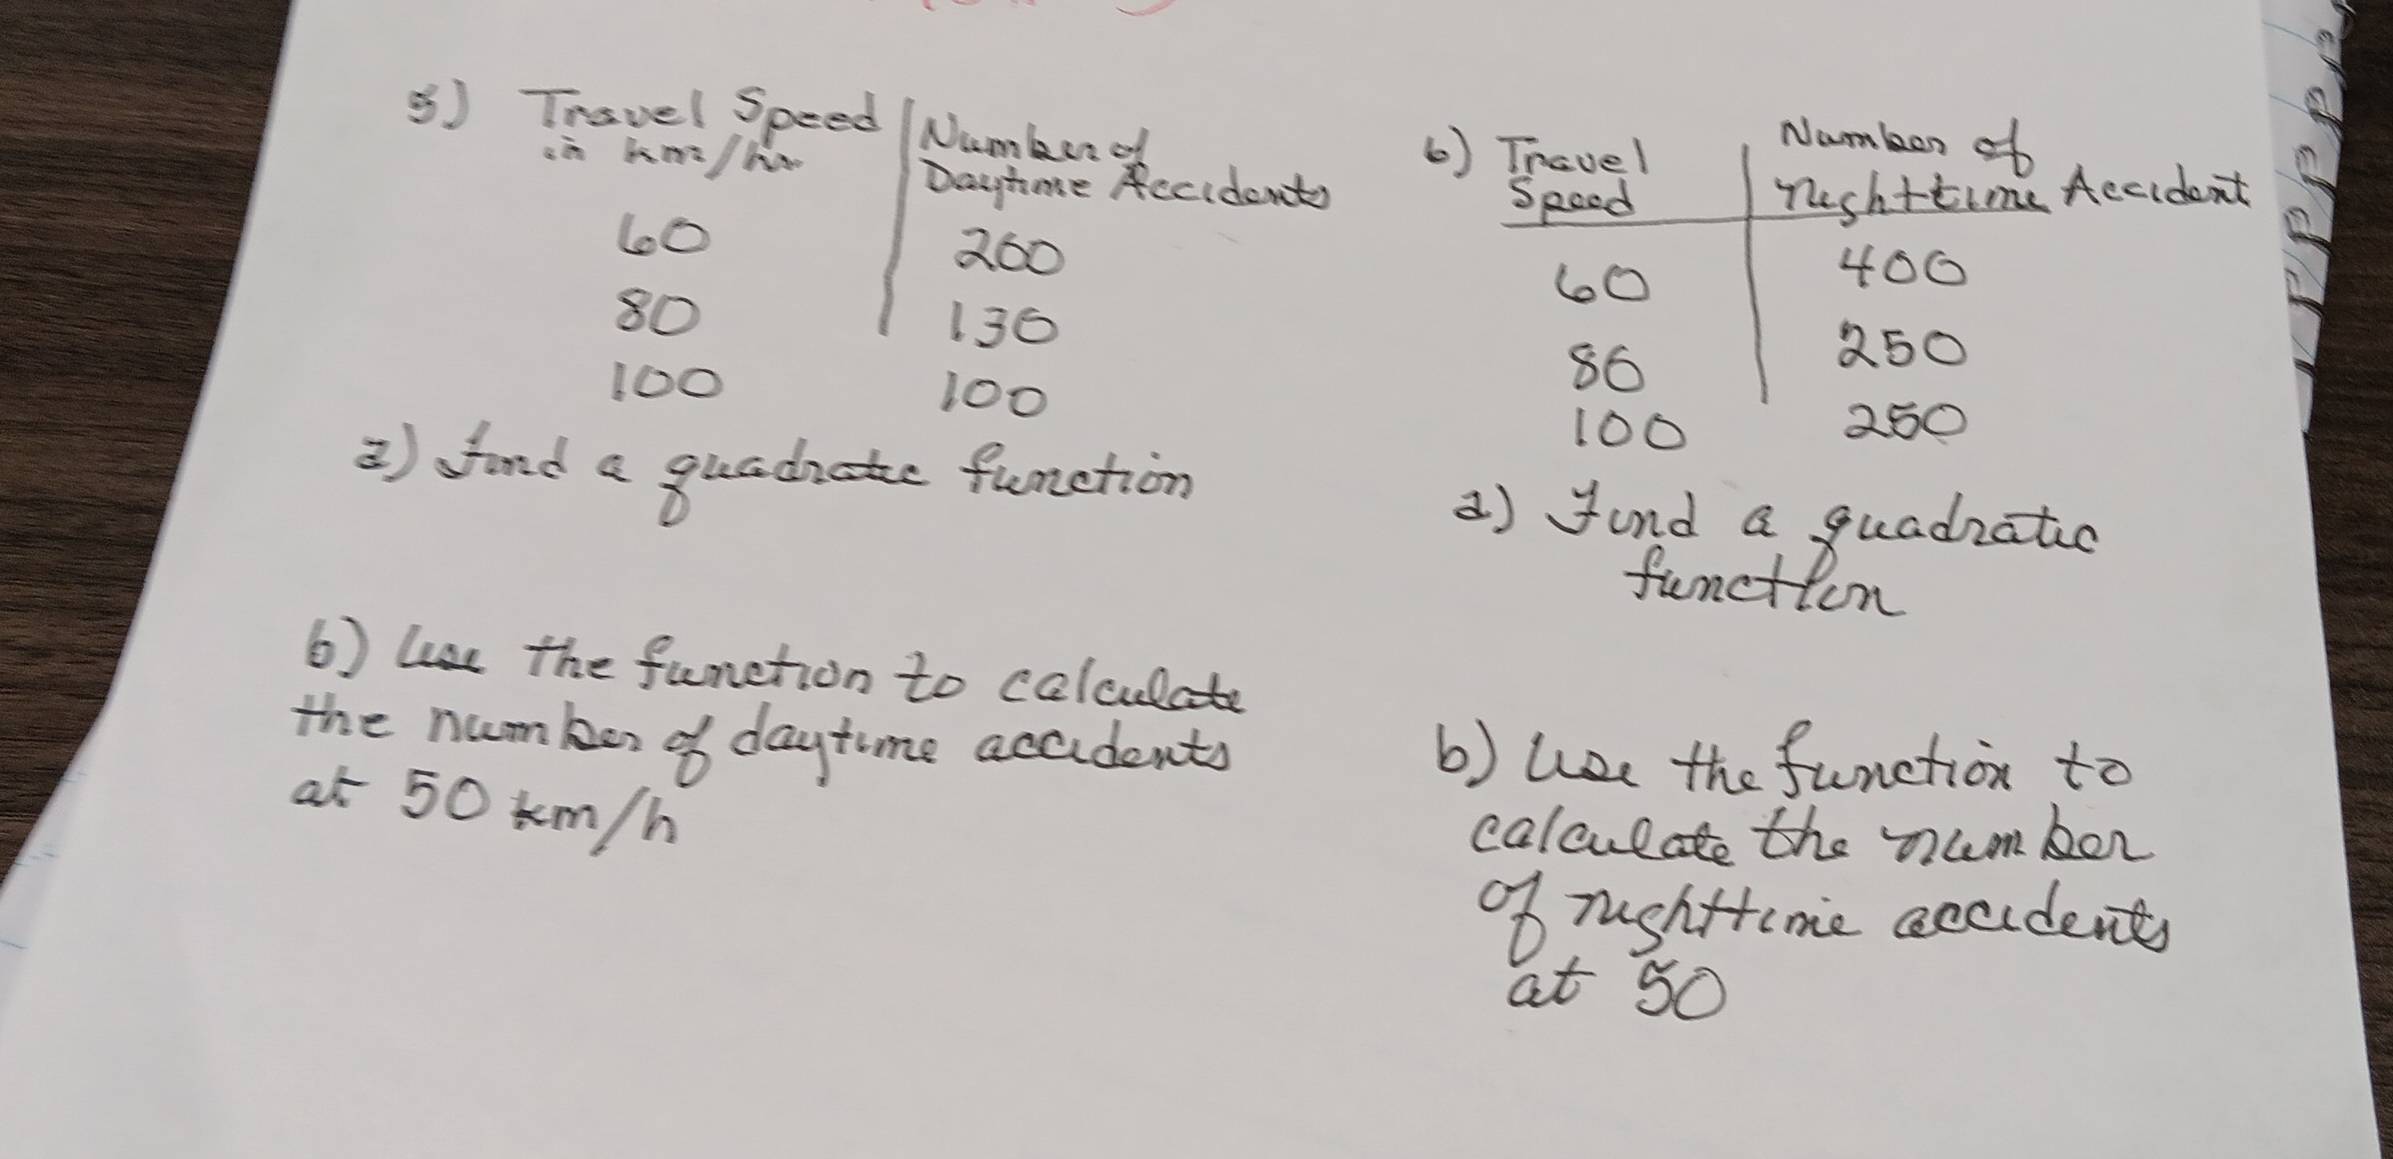 5) Travel Speed in km/hr | Number of Daytime Accidents
60 200
80 130
100 100
a) Find a quadratic function
b) Use the function to calculate
the number of daytime accidents
at 50 km/h
6) Travel Speed | Number of nighttime Accident
60 400
80 250
100 250
a) Find a quadratic
function
b) Use the function to
calculate the number
of nighttime accidents
at 50